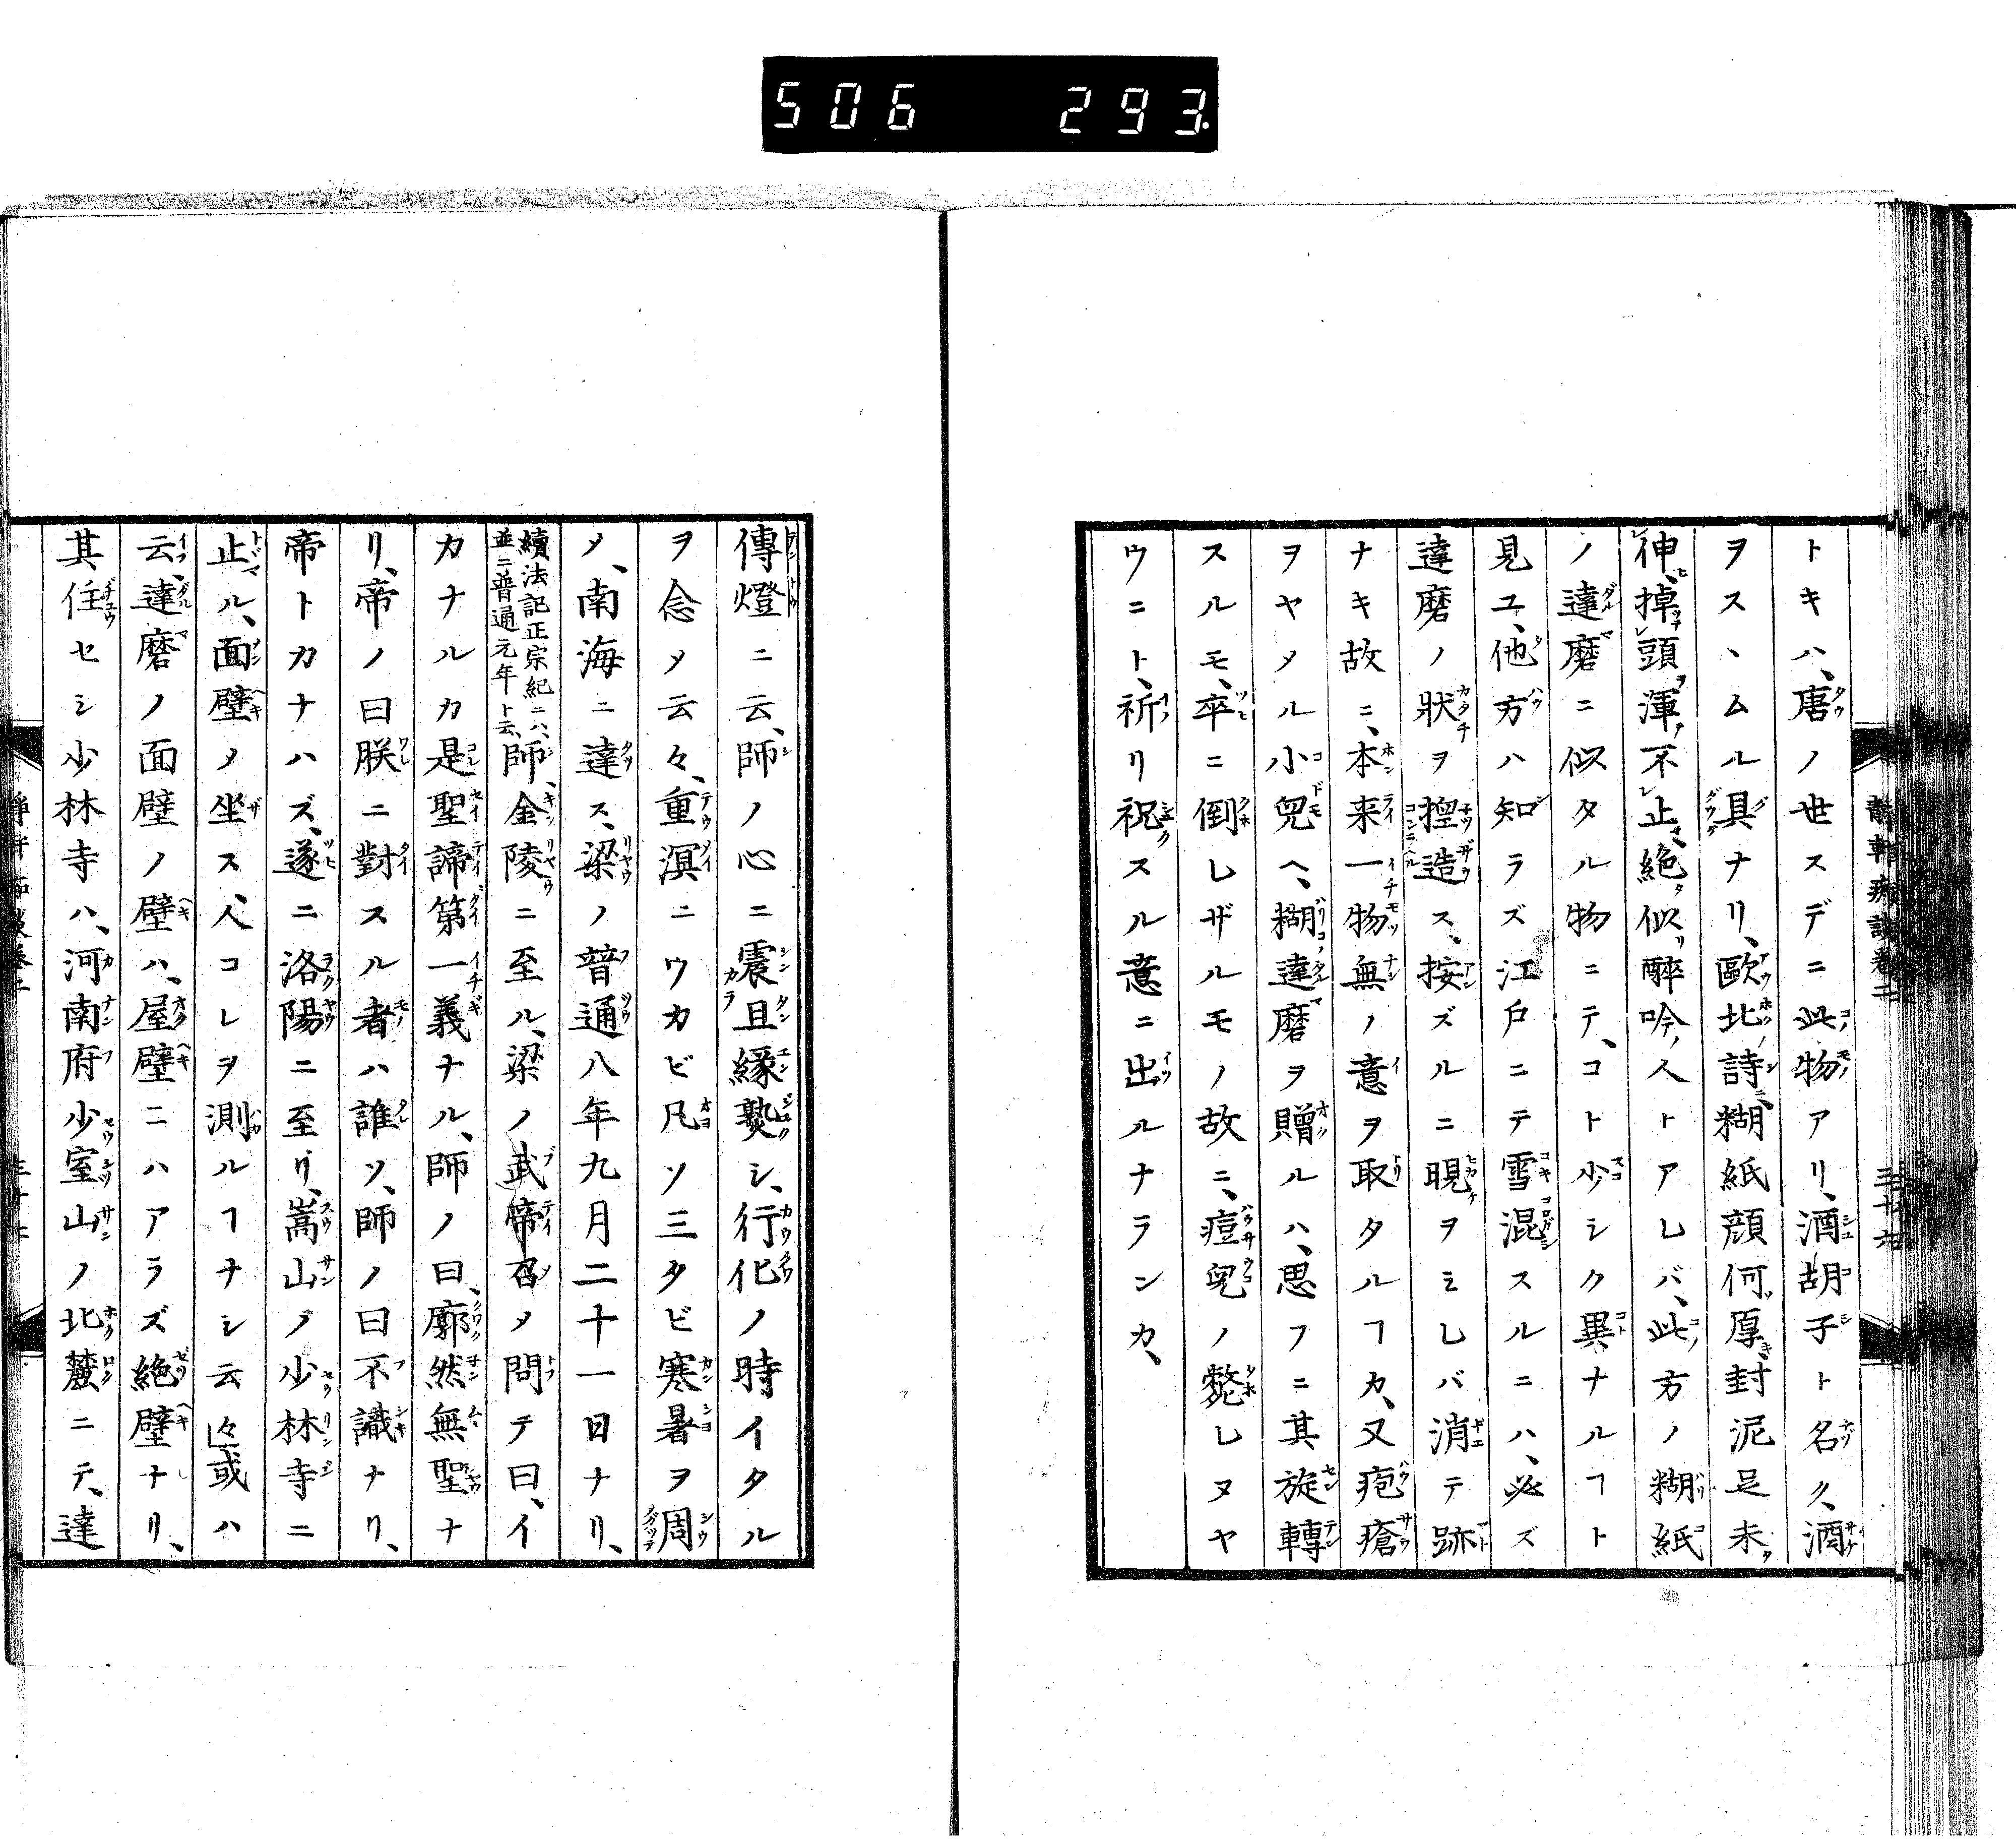 506 293
トキハ、唐ノ世スデニ此物アリ、酒胡子ト名ク、酒
ヲスヽムル具ナリ、歐北ノ詩ニ、糊紙顔何厚封泥足未
伸、掉頭渾不止、絶似醉吟人トアレバ、此方ノ糊紙
ノ達磨ニ似タル物ニテ、コト少シク異ナルヿト
見ユ、他方ハ知ラズ江戸ニテ雪混スルニハ、必ズ
達磨ノ狀ヲ揑造ス、按ズルニ晛ヲミレバ消テ跡
ナキ故ニ、本来一物無ノ意ヲ取タルヿカ、又疱瘡
ヲヤメル小兒ヘ、糊達磨ヲ贈ルハ、思フニ其旋轉
スルモ、卒ニ倒レザルモノ故ニ、痘兒ノ斃レヌヤ
ウニト、祈リ祝スル意ニ出ルナランカ、
傳燈ニ云、師ノ心ニ震旦緣熟シ、行化ノ時イタル
ヲ念メ云々、重溟ニウカビ凡ソ三タビ寒暑ヲ周
メ、南海ニ達ス、梁ノ普通八年九月二十一日ナリ、
續法記正宗紀ニハ、並ニ普通元年ト云、師、金陵ニ至ル、梁ノ武帝召メ問テ曰、イ
カナルカ是聖諦第一義ナル、師ノ曰、廓然無聖ナ
リ、帝ノ曰朕ニ對スル者ハ誰ソ、師ノ曰不識ナリ、
帝トカナハズ、遂ニ洛陽ニ至リ、嵩山ノ少林寺ニ
止マル、面壁メ坐ス、人コレヲ測ルヿナシ云々或ハ
云、達磨ノ面壁ノ壁ハ、屋壁ニハアラズ絶壁ナリ、
其住セシ少林寺ハ、河南府少室山ノ北麓ニテ、達